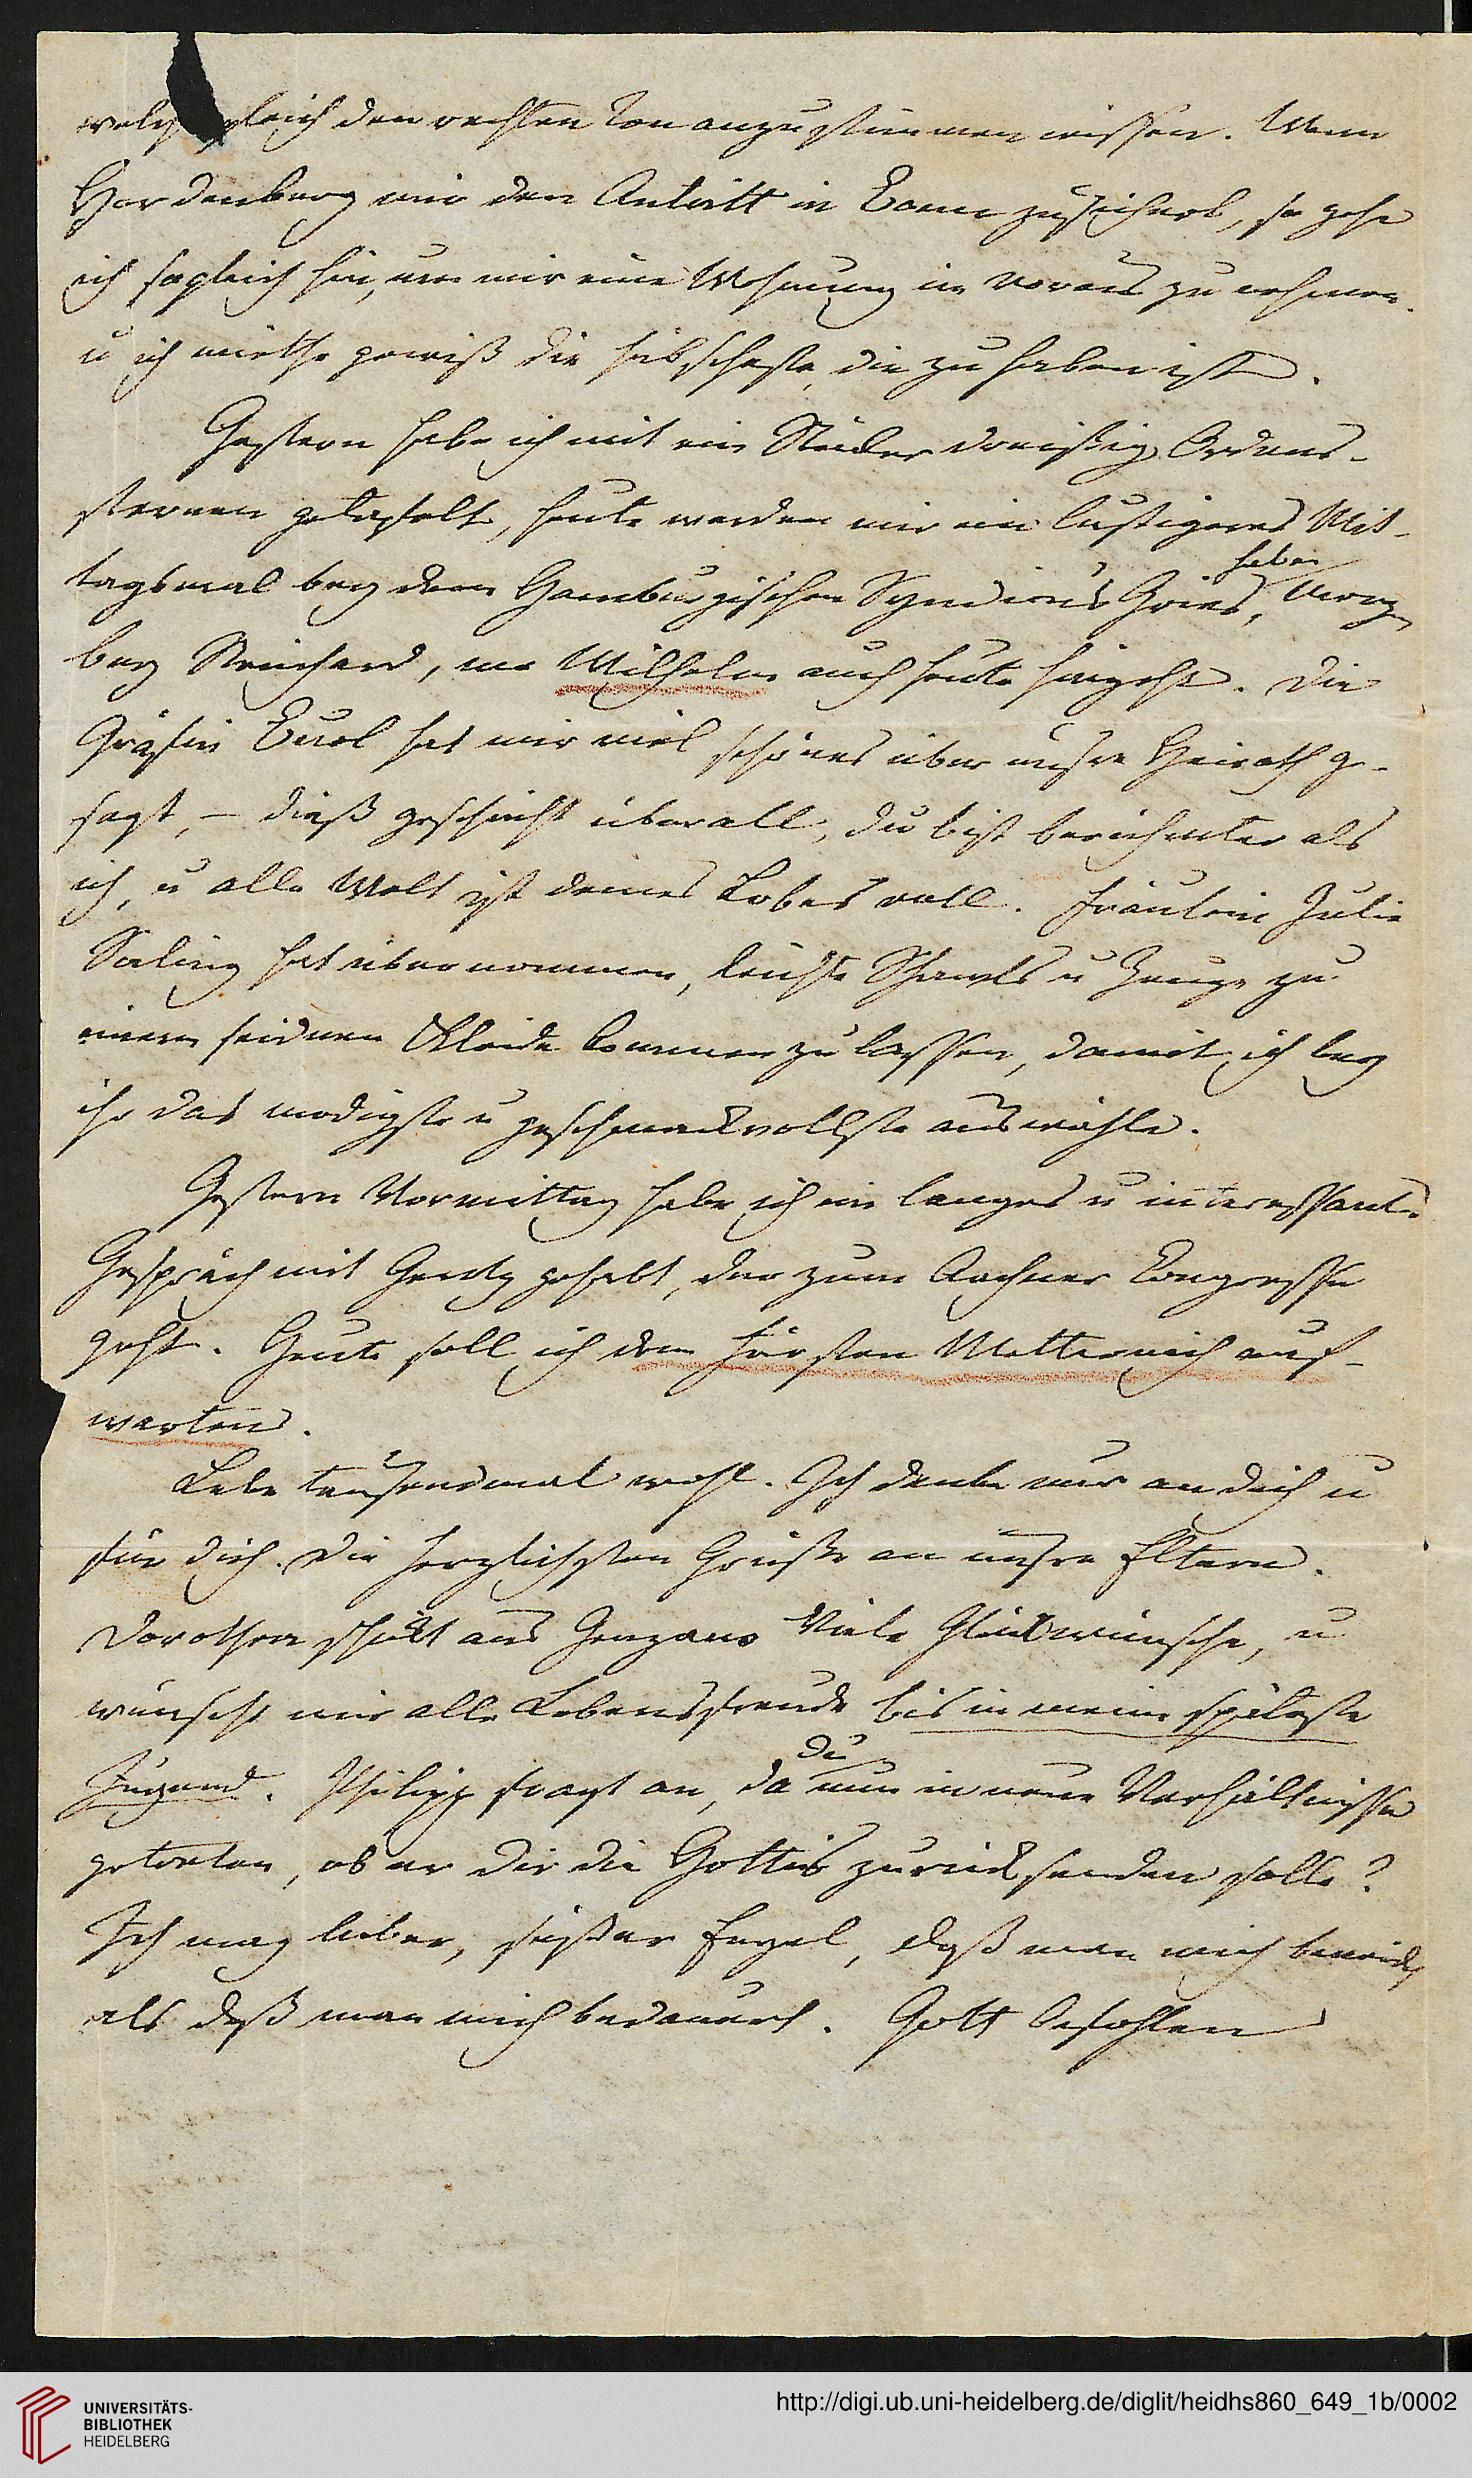 welche gleich den rechten Ton anzustimmen wissen. Wenn
Hardenberg mir den Antritt in Bonn zusichert, so gehe
ich sogleich hin, um mir eine Wohnung im voraus zu nehmen.
u ich miethe gewiß die hübscheste, die zu haben ist.
Gestern habe ich mit ein Stücker dreißig Ordens-
sternen getafelt, heute werden wir ein lustigeres Mit-
haben
tagsmal bey dem Hamburgischen Syndicus Gries,
bey Reinhard, wo Wilhelm auch heute hingeht. Die
Gräfin Buol hat mir viel schönes über unsre Heirath ge-
sagt, – dieß geschieht überall, du bist berühmter als
ich, u alle Welt ist deines Lobes voll. Fräulein Julie
Saling hat übernommen, leichte Shawls u Zeuge zu
einem seidnen Kleide kommen zu lassen, damit ich bey
ihr das modigste u geschmackvollste auswähle.
Gestern Vormittag habe ich ein langes u interessantes
Gespräch mit Gentz gehabt, der zum Aachner Congresse
geht. Heute soll ich dem Fürsten Metternich auf-
warten.
Lebe tausendmal wohl. Ich denke nur an dich u
für dich. Die herzlichsten Grüße an unsre Eltern.
Dorothea schickt aus Genzano viele Glückwünsche, u
wünscht mir alle Lebensfreude bis in meine späteste
Du
Jugend. Philipp fragt an, da nun in neue Verhältnisse
getreten, ob er dir die Gottis zurücksenden solle?
Ich mag lieber, süßer Engel, daß man mich beneidet
als daß man mich bedauert. Gott befohlen
UNIVERSITÄTS-
BIBLIOTHEK
HEIDELBERG
http://digi.ub.uni-heidelberg.de/diglit/heidhs860_649_1b/0002